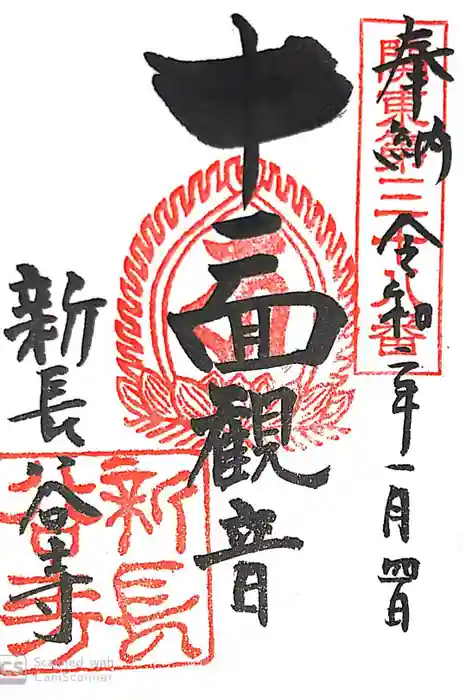 奉納 令和二年一月四日
関東第三十八番
十一面観音
新長谷寺
新長
谷寺
CS Scanned with CamScanner